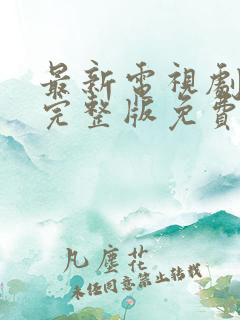 最新電視劇
完整版免費
凡塵花
未经同意禁止转载